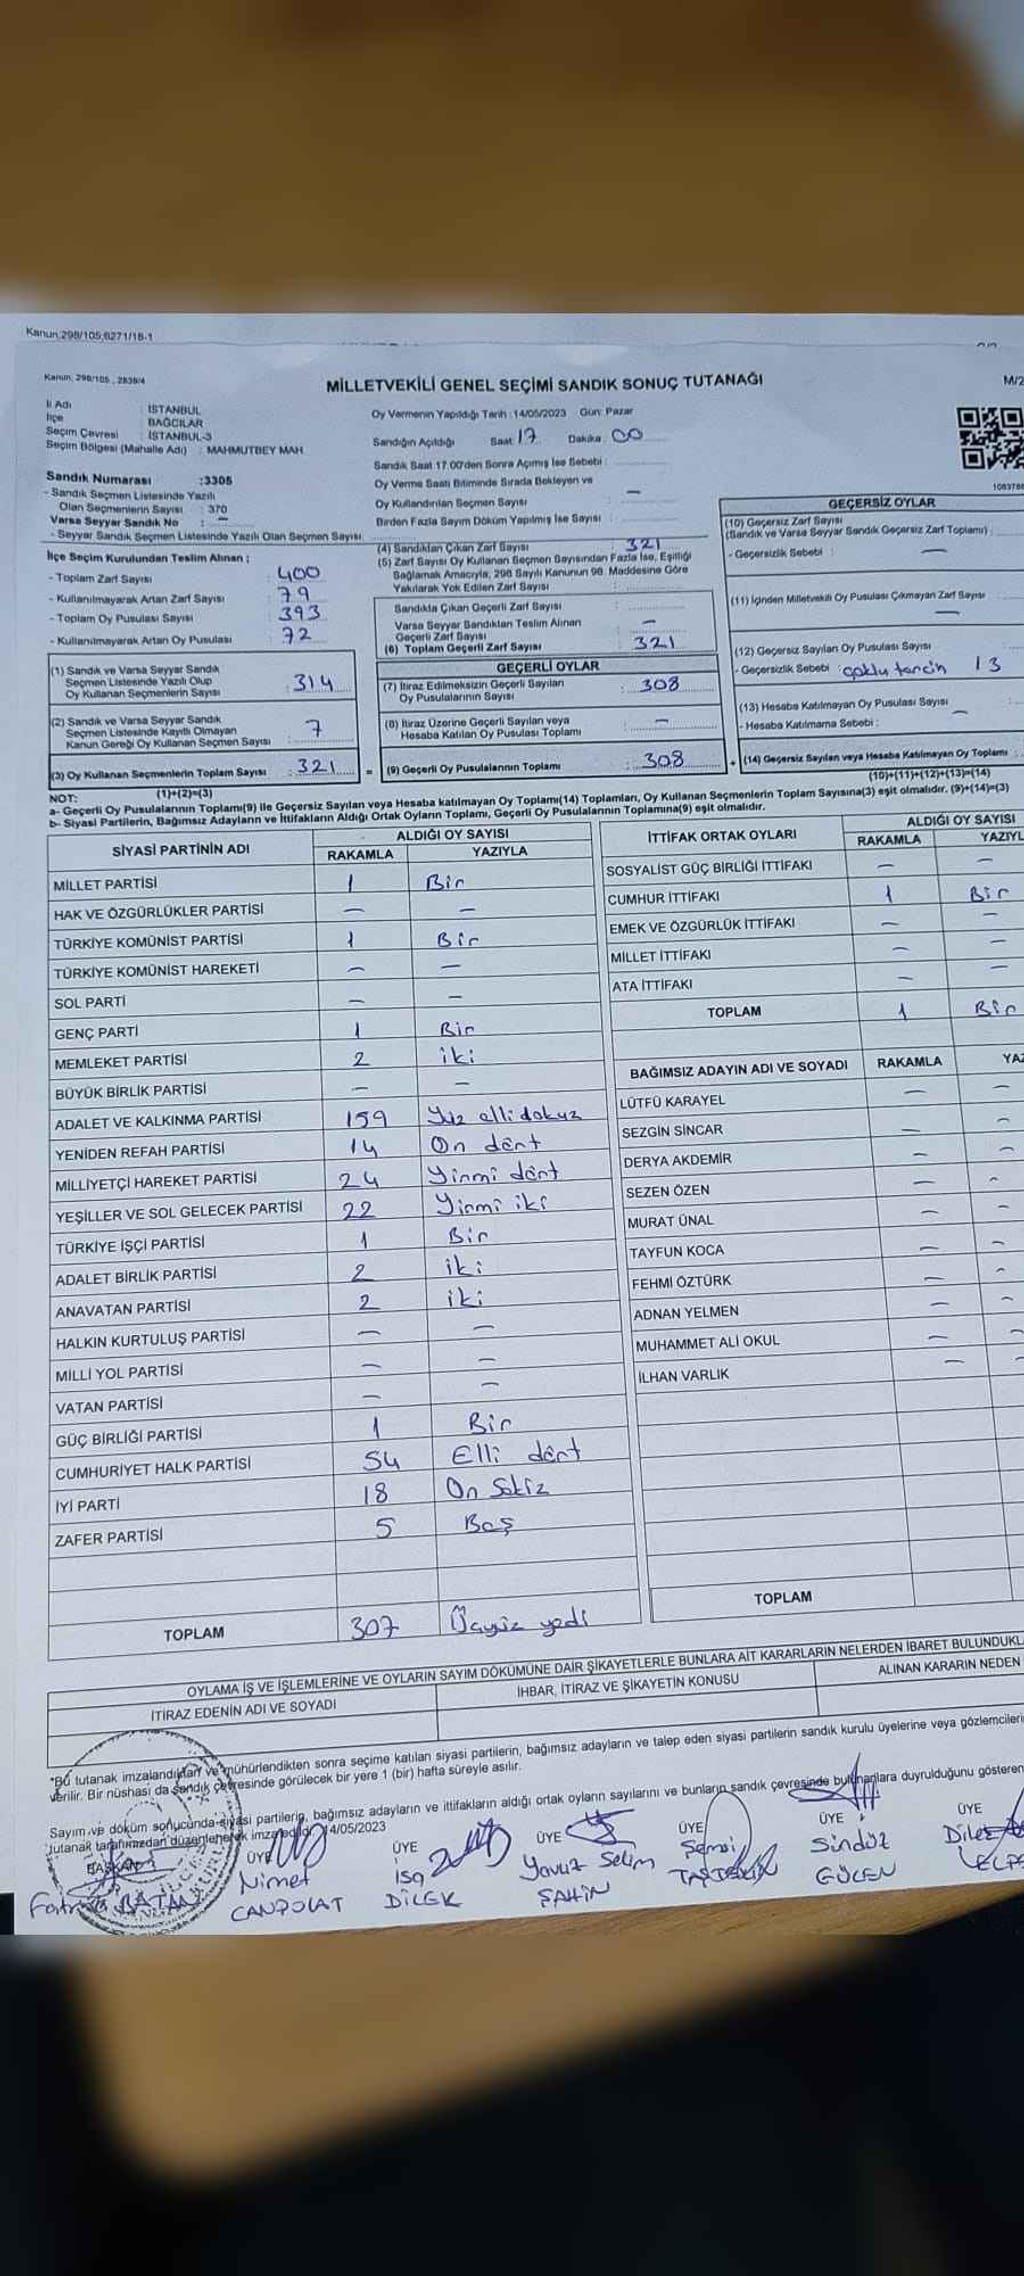 Kanun;298/105;6271/18-1
Kanun, 298/105 , 2839/4
MİLLETVEKİLİ GENEL SEÇİMİ SANDIK SONUÇ TUTANAĞI
M/2
İl Adı : İSTANBUL
İlçe : BAĞCILAR
Seçim Çevresi : İSTANBUL-3
Seçim Bölgesi (Mahalle Adı) : MAHMUTBEY MAH.
Oy Vermenin Yapıldığı Tarih :14/05/2023 Gün: Pazar
Sandığın Açıldığı Saat: 17 Dakika : 00
Sandık Saat 17.00'den Sonra Açımış İse Sebebi :
Oy Verme Saati Bitiminde Sırada Bekleyen ve
Oy Kullandırılan Seçmen Sayısı : —
Birden Fazla Sayım Döküm Yapılmış İse Sayısı :
Sandık Numarası :3305
- Sandık Seçmen Listesinde Yazılı
Olan Seçmenlerin Sayısı : 370
Varsa Seyyar Sandık No : —
- Seyyar Sandık Seçmen Listesinde Yazılı Olan Seçmen Sayısı
İlçe Seçim Kurulundan Teslim Alınan ;
- Toplam Zarf Sayısı : 400
- Kullanılmayarak Artan Zarf Sayısı : 79
- Toplam Oy Pusulası Sayısı : 393
- Kullanılmayarak Artan Oy Pusulası : 72
(1) Sandık ve Varsa Seyyar Sandık
Seçmen Listesinde Yazılı Olup
Oy Kullanan Seçmenlerin Sayısı : 314
(2) Sandık ve Varsa Seyyar Sandık
Seçmen Listesinde Kayıtlı Olmayan
Kanun Gereği Oy Kullanan Seçmen Sayısı : 7
(3) Oy Kullanan Seçmenlerin Toplam Sayısı : 321
(1)+(2)=(3)
(4) Sandıktan Çıkan Zarf Sayısı : 321
(5) Zarf Sayısı Oy Kullanan Seçmen Sayısından Fazla İse, Eşitliği
Sağlamak Amacıyla, 298 Sayılı Kanunun 98. Maddesine Göre
Yakılarak Yok Edilen Zarf Sayısı :
Sandıkta Çıkan Geçerli Zarf Sayısı :
Varsa Seyyar Sandıktan Teslim Alınan
Geçerli Zarf Sayısı : —
(6) Toplam Geçerli Zarf Sayısı : 321
GEÇERLİ OYLAR
(7) İtiraz Edilmeksizin Geçerli Sayılan
Oy Pusulalarının Sayısı : 308
(8) İtiraz Üzerine Geçerli Sayılan veya
Hesaba Katılan Oy Pusulası Toplamı : —
= (9) Geçerli Oy Pusulalarının Toplamı : 308
GEÇERSİZ OYLAR
(10) Geçersiz Zarf Sayısı
(Sandık ve Varsa Seyyar Sandık Geçersiz Zarf Toplamı) :
- Geçersizlik Sebebi : —
(11) İçinden Milletvekili Oy Pusulası Çıkmayan Zarf Sayısı :
—
(12) Geçersiz Sayılan Oy Pusulası Sayısı
- Geçersizlik Sebebi : çoklu tercih 13
(13) Hesaba Katılmayan Oy Pusulası Sayısı :
- Hesaba Katılmama Sebebi : —
+ (14) Geçersiz Sayılan veya Hesaba Katılmayan Oy Toplamı :
(10)+(11)+(12)+(13)=(14)
NOT:
a- Geçerli Oy Pusulalarının Toplamı(9) ile Geçersiz Sayılan veya Hesaba katılmayan Oy Toplamı(14) Toplamları, Oy Kullanan Seçmenlerin Toplam Sayısına(3) eşit olmalıdır. (9)+(14)=(3)
b- Siyasi Partilerin, Bağımsız Adayların ve İttifakların Aldığı Ortak Oyların Toplamı, Geçerli Oy Pusulalarının Toplamına(9) eşit olmalıdır.
SİYASİ PARTİNİN ADI ALDIĞI OY SAYISI
RAKAMLA YAZIYLA
MİLLET PARTİSİ 1 Bir
HAK VE ÖZGÜRLÜKLER PARTİSİ — —
TÜRKİYE KOMÜNİST PARTİSİ 1 Bir
TÜRKİYE KOMÜNİST HAREKETİ — —
SOL PARTİ — —
GENÇ PARTİ 1 Bir
MEMLEKET PARTİSİ 2 iki
BÜYÜK BİRLİK PARTİSİ — —
ADALET VE KALKINMA PARTİSİ 159 Yüz elli dokuz
YENİDEN REFAH PARTİSİ 14 On dört
MİLLİYETÇİ HAREKET PARTİSİ 24 Yirmi dört
YEŞİLLER VE SOL GELECEK PARTİSİ 22 Yirmi iki
TÜRKİYE İŞÇİ PARTİSİ 1 Bir
ADALET BİRLİK PARTİSİ 2 iki
ANAVATAN PARTİSİ 2 iki
HALKIN KURTULUŞ PARTİSİ — —
MİLLİ YOL PARTİSİ — —
VATAN PARTİSİ — —
GÜÇ BİRLİĞİ PARTİSİ 1 Bir
CUMHURİYET HALK PARTİSİ 54 Elli dört
İYİ PARTİ 18 On Sekiz
ZAFER PARTİSİ 5 Beş
TOPLAM 307 Üçyüz yedi
İTTİFAK ORTAK OYLARI ALDIĞI OY SAYISI
RAKAMLA
SOSYALİST GÜÇ BİRLİĞİ İTTİFAKI — —
CUMHUR İTTİFAKI 1 Bir
EMEK VE ÖZGÜRLÜK İTTİFAKI — —
MİLLET İTTİFAKI — —
ATA İTTİFAKI — —
TOPLAM 1 Bir
BAĞIMSIZ ADAYIN ADI VE SOYADI RAKAMLA
LÜTFÜ KARAYEL — —
SEZGİN SİNCAR — —
DERYA AKDEMİR — —
SEZEN ÖZEN — —
MURAT ÜNAL — —
TAYFUN KOCA — —
FEHMİ ÖZTÜRK — —
ADNAN YELMEN — —
MUHAMMET ALİ OKUL — —
İLHAN VARLIK — —
TOPLAM
OYLAMA İŞ VE İŞLEMLERİNE VE OYLARIN SAYIM DÖKÜMÜNE DAİR ŞİKAYETLERLE BUNLARA AİT KARARLARIN NELERDEN İBARET BULUNDUKL
İTİRAZ EDENİN ADI VE SOYADI İHBAR, İTİRAZ VE ŞİKAYETİN KONUSU ALINAN KARARIN NEDEN
*Bu tutanak imzalandıktan ve mühürlendikten sonra seçime katılan siyasi partilerin, bağımsız adayların ve talep eden siyasi partilerin sandık kurulu üyelerine veya gözlemcileri
verilir. Bir nüshası da sandık çevresinde görülecek bir yere 1 (bir) hafta süreyle asılır.
Sayım ve döküm sonucunda siyasi partilerin, bağımsız adayların ve ittifakların aldığı ortak oyların sayılarını ve bunların sandık çevresinde bulunanlara duyurulduğunu gösteren
tutanak tarafımızdan düzenlenerek imza edildi. 14/05/2023
BAŞKAN ÜYE ÜYE ÜYE ÜYE ÜYE ÜYE
Fatma BATAN Nimet CANPOLAT İsa DİLEK Yavuz Selim ŞAHİN Şemsi Sindüz GÜLEN Dilek